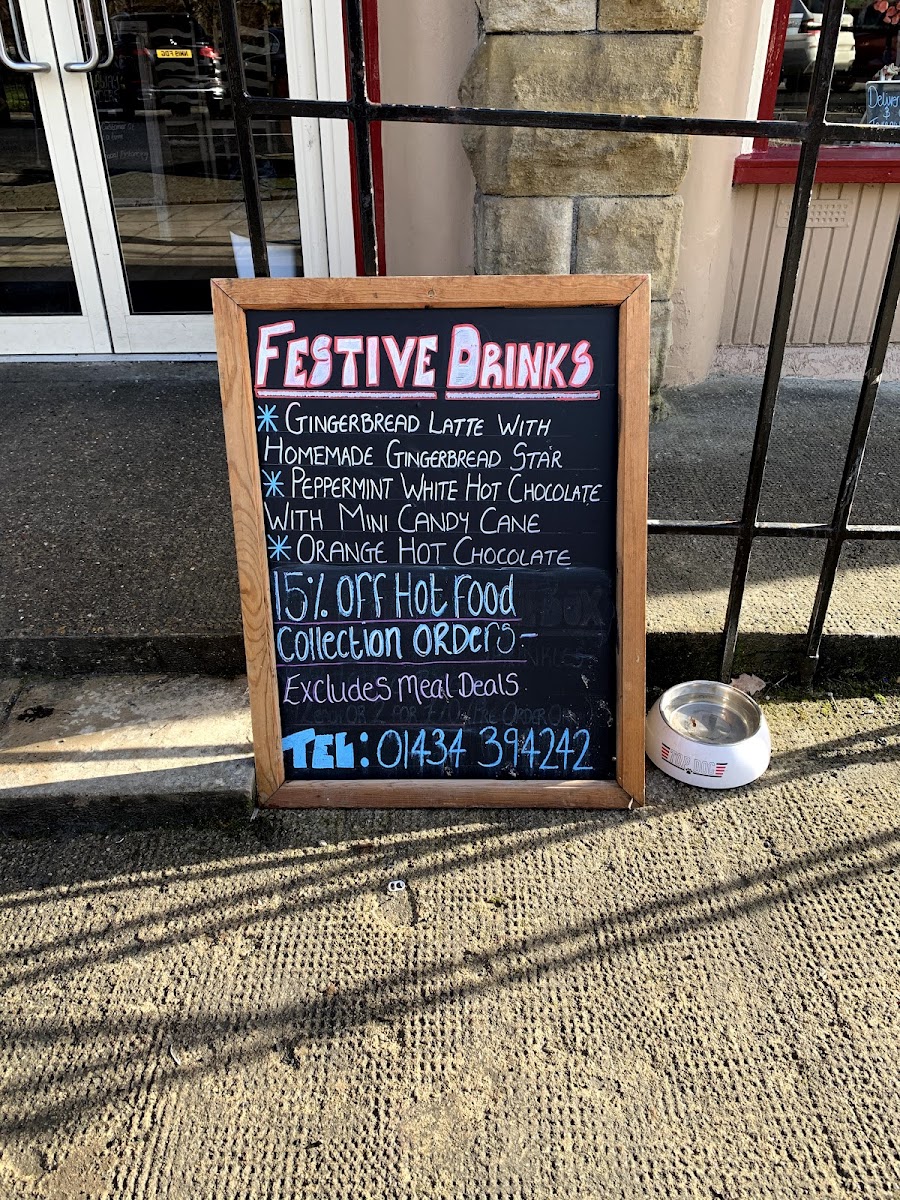 Festive Drinks
* Gingerbread Latte With
Homemade Gingerbread Star
* Peppermint White Hot Chocolate
With Mini Candy Cane
* Orange Hot Chocolate
15% off Hot Food
Collection Orders -
Excludes Meal Deals
TEL: 01434 394242
TOP DOG